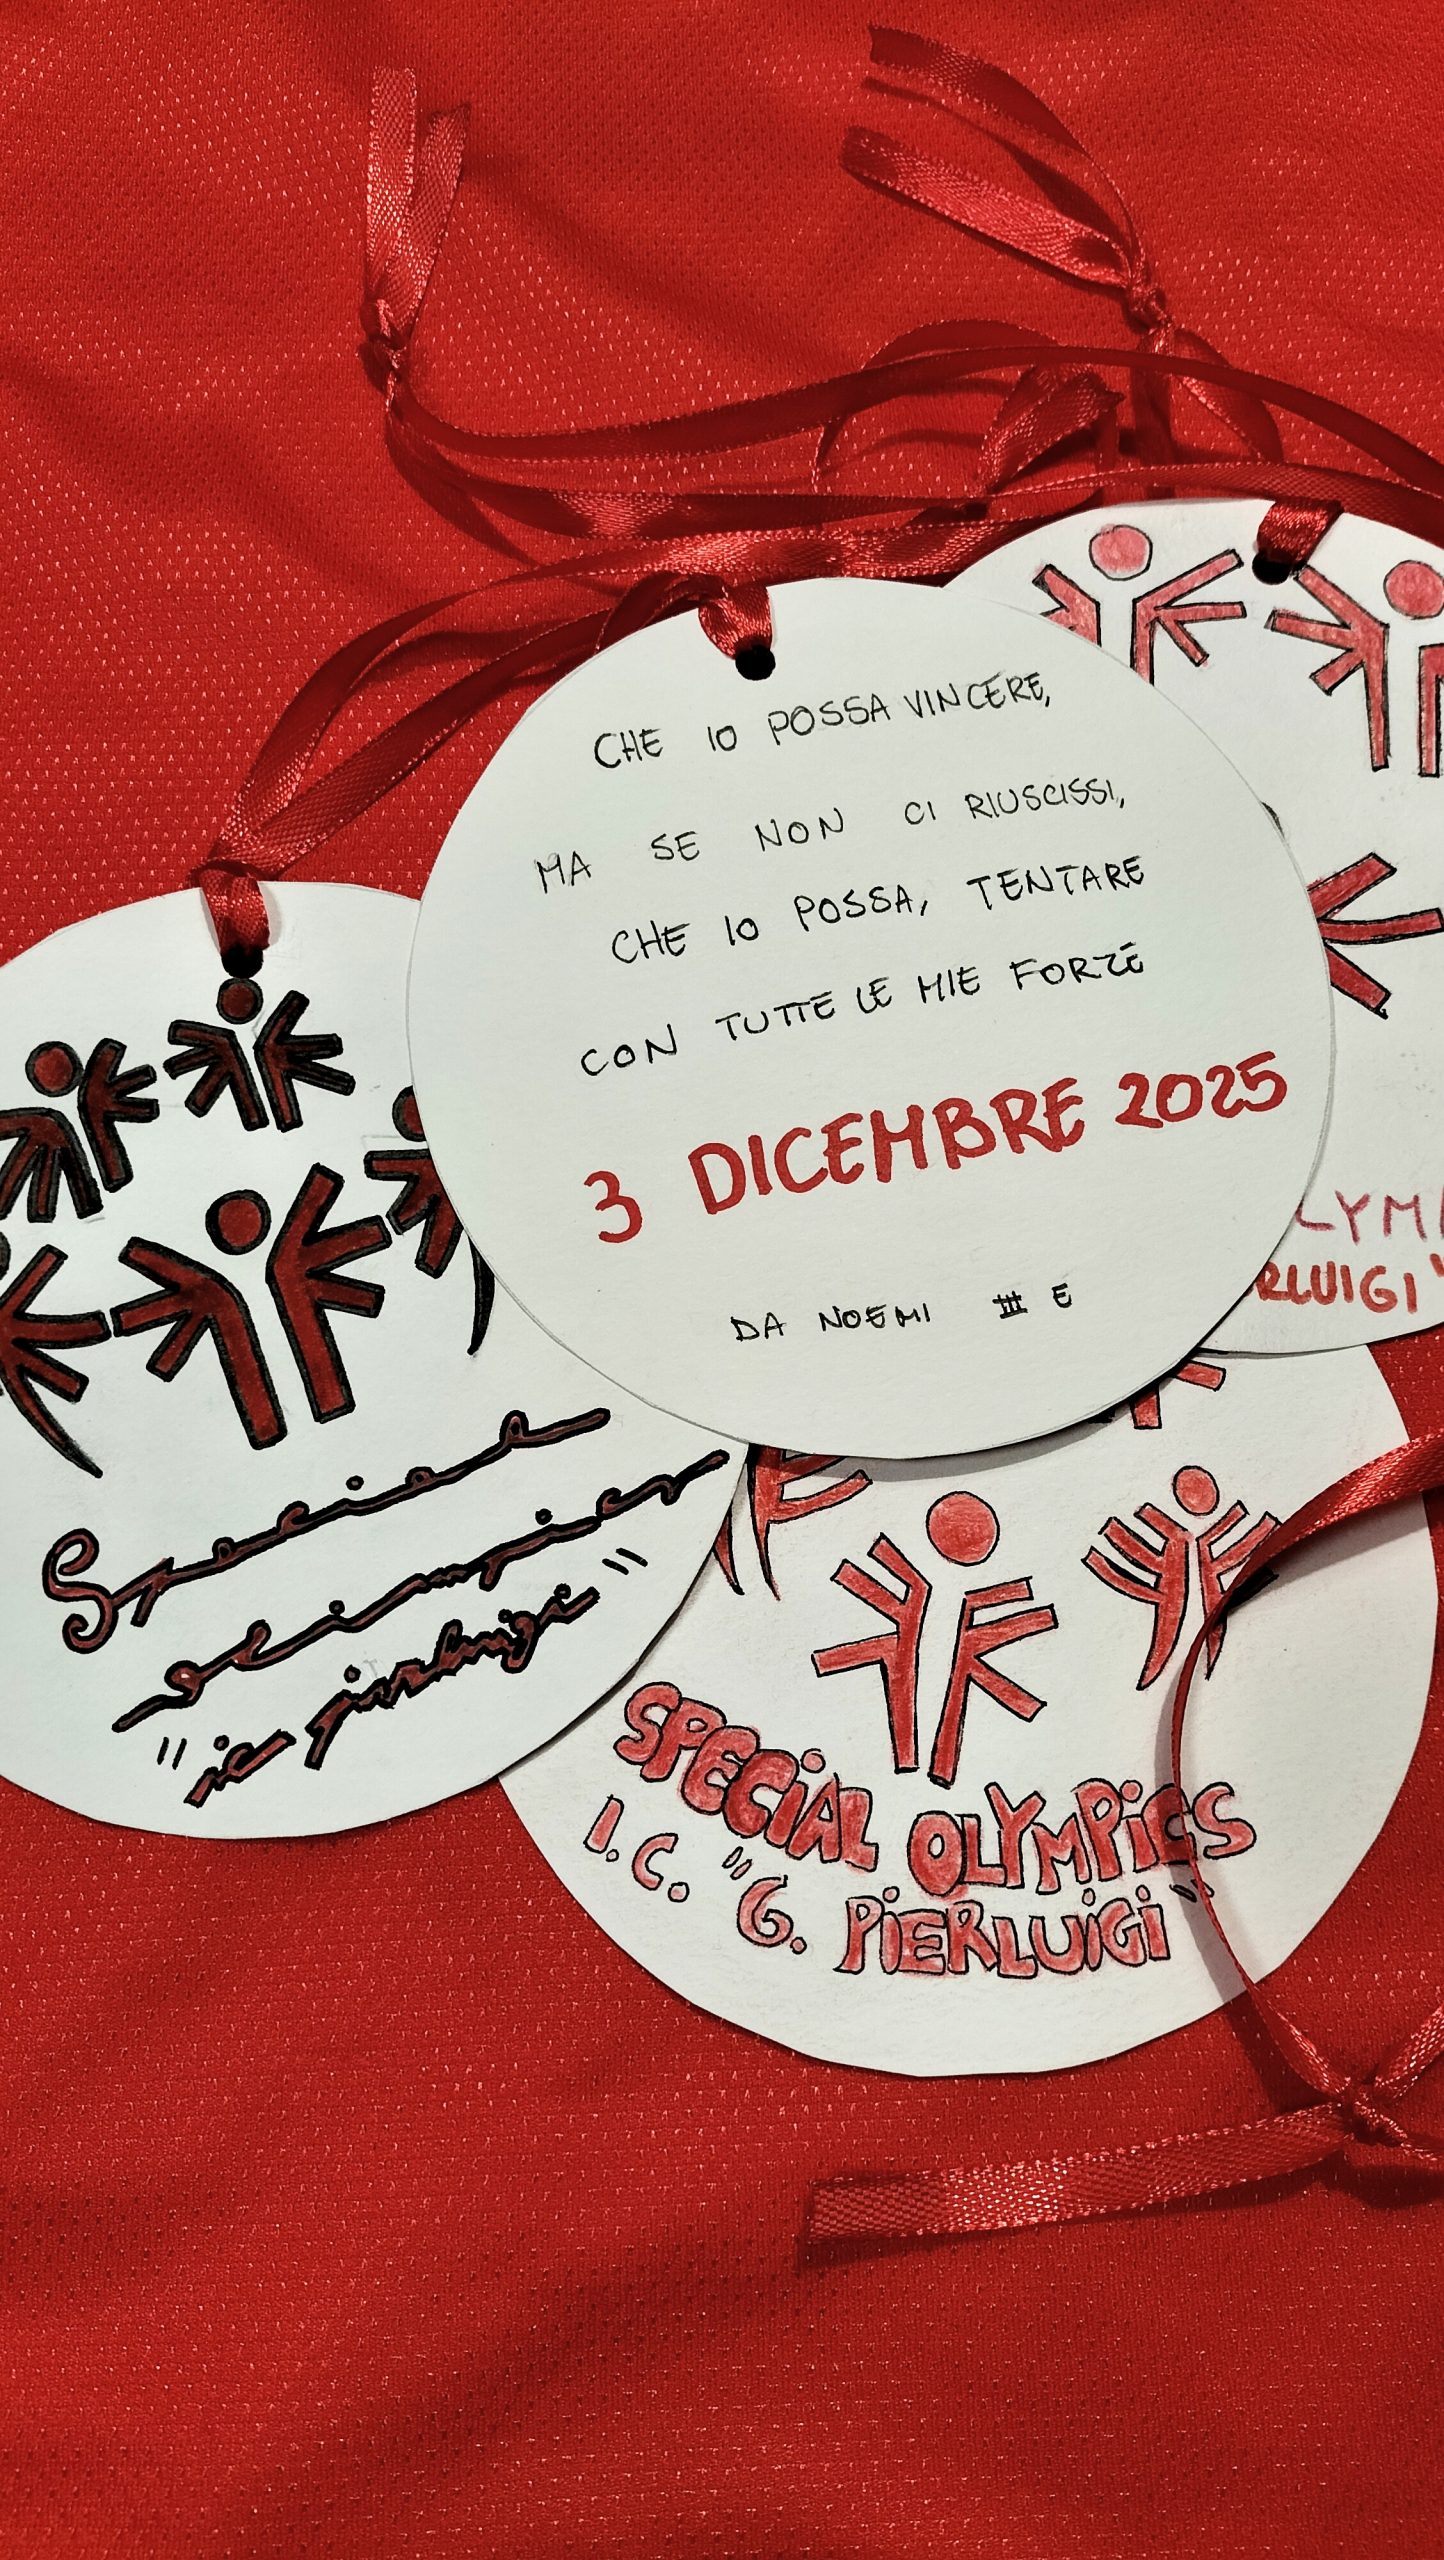 CHE IO POSSA VINCERE,
MA SE NON CI RIUSCISSI,
CHE IO POSSA, TENTARE
CON TUTTE LE MIE FORZE
3 DICEMBRE 2025
DA NOEMI III E
LYM
RLUIGI"
Special
olimpics
"ic pierluigi"
SPECIAL OLYMPiCS
I.C. "G. PiERLUiGi"